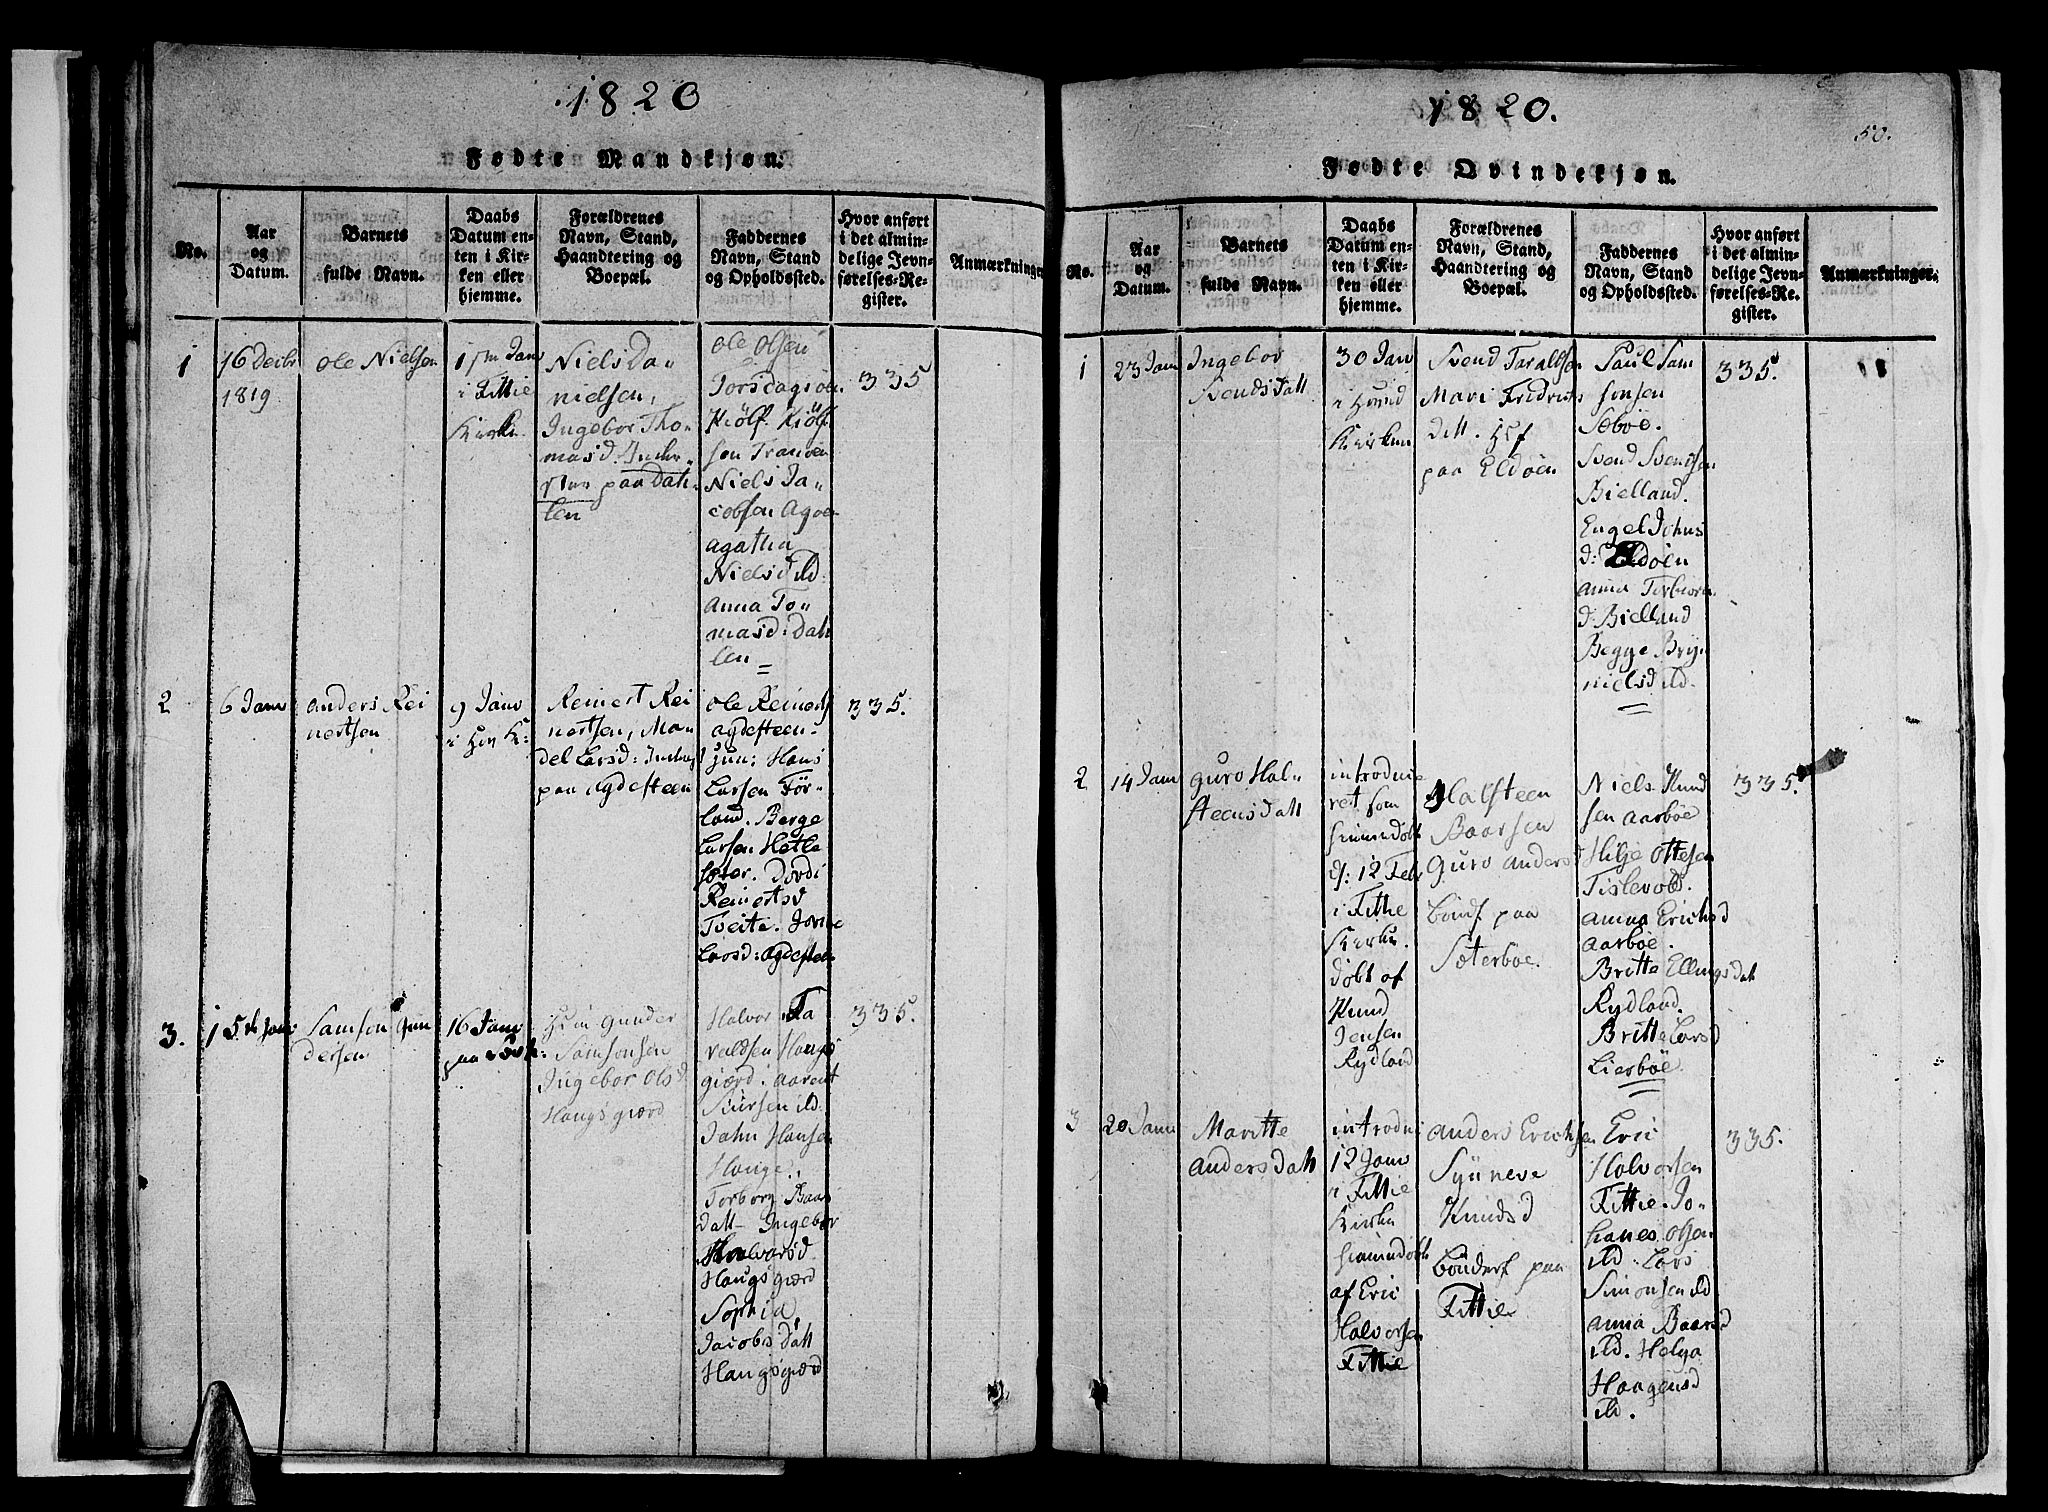 1820
Fødte Mandkjøn.
No.
Aar
og
Datum.
Barnets
fulde Navn.
Daabs
Datum en-
ten i Kir-
ken eller
hjemme.
Forældrenes
Navn, Stand,
Haandtering og
Boepæl.
Faddernes
Navn, Stand
og Opholdssted.
Hvor anført
i det almin-
delige Jevn-
førelses-Re-
gister.
Anmærkninger
1
16 Decbr
1819
Ole Nielsen
1ste Janv
i Fittie
Kirke
Niels Da-
nielsen,
Ingebor Tho-
masd.
paa Dah-
len
Ole Olsen
Kiölf Kiölf
sen
Niels Ja-
cobsen
Agatha
Nielsd ibd.
Anna To-
masd: Dah
len
335
2
6 Janv
Anders Rei
nertsen
9 Janv
i
Reinert Rei
nertsen, Ma-
del Larsd:
paa Agdesteen
Ole Reinerts
Agdesteen
jun: Hans
Larsen För-
land. Berge
Larsen Hetle
sæter. Dordi
Reinertsd
Tveite.
Larsd: Agdesteen
335.
3.
15de Janv
Samson Gun
dersen
16 Janv
paa
Gunder
Samsonsen
Ingebor Olsd
Haugsgiærd
Halvor Ta
raldsen Haugs
giærd. Aarent
Siursen ibd.
Jahn Hansen
Hauge.
Torborg Baars
datt Ingebor
Halvorsd
Haugsgiærd
Sophia
Jacobs datt
Haugsgiærd
335.
1820.
50.
Fødte Qvindekjøn.
No.
Aar
og
Datum.
Barnets
fulde Navn.
Daabs
Datum en-
ten i Kir-
ken eller
hjemme.
Forældrenes
Navn, Stand,
Haandtering og
Boepæl.
Faddernes
Navn, Stand
og Opholdssted.
Hvor anført
i det almin-
delige Jevn-
førelses-Re-
gister.
Anmærkninger.
1
23 Janv
Ingebor
Svendsdatt
30 Janv
i
Kirken
Svend Taraldsen
Mari Fredriks
datt.
paa Eldöen
Paul Sam
sonsen
Sæböe.
Svend Svendsen
Bielland.
Engel Johns
d: Eldöen
Anna Torbiörn
d: Bielland
Begge Bryn
nielsd ibd.
335.
2
14 Janv
Guro Hal-
steensdatt
introduce
ret som
hiemedöbt
d: 12 Febr
i Fittie
Kirke.
döbt af
Knud
Jensen
Rydland
Halsteen
Baarsen
Guro Andersd
bönd. paa
Sæterböe.
Niels Knud
sen Aarböe
Hilje Ottesen
Tislevold.
Anna Erichsd
Aarböe.
Britte Ellingsdatt
Rydland.
Britte Larsd
Lierböe.
335.
3
20 Janv
Maritte
Andersdatt
introdu
12 Janv
i Fittie
Kirke
hiemmedöbt
af Eric
Halvorsen
Fittie
Anders Erichsen
Syneve
Knudsd
bönderf paa
Fittie
Eric
Halvorsen
Fittie. Jo-
hanes Olsen
ibd. Lars
Simonsen ibd
Anna Baarsd
ibd. Helga
Haagensd
ibd.
335.